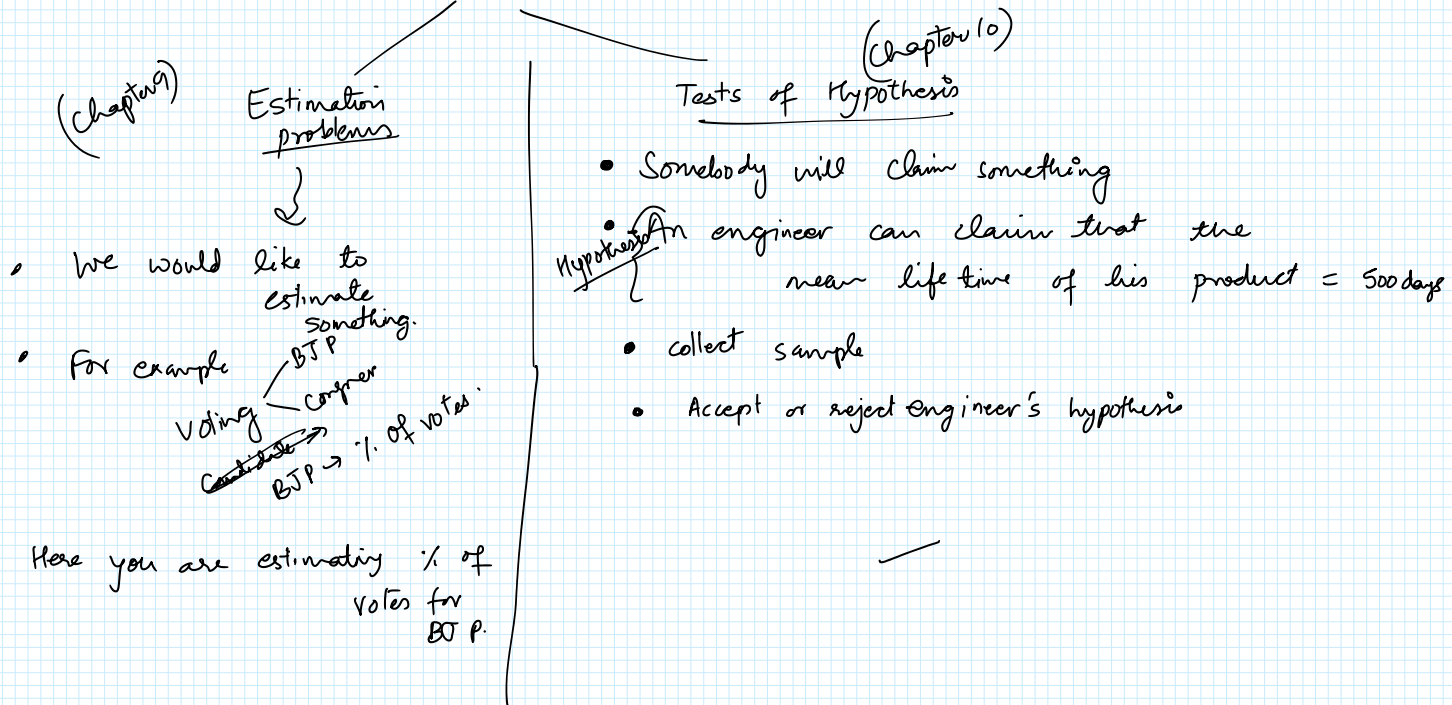 (Chapter 9)
Estimation
problems
• We would like to
estimate
something.
• For example
Voting
BJP
BJP → % of votes.
Here you are estimating % of
votes for
BJP.
(Chapter 10)
Tests of Hypothesis
• Somebody will claim something
Hypothesis
• An engineer can claim that the
mean life time of his product = 500 days
• collect sample
• Accept or reject engineer's hypothesis